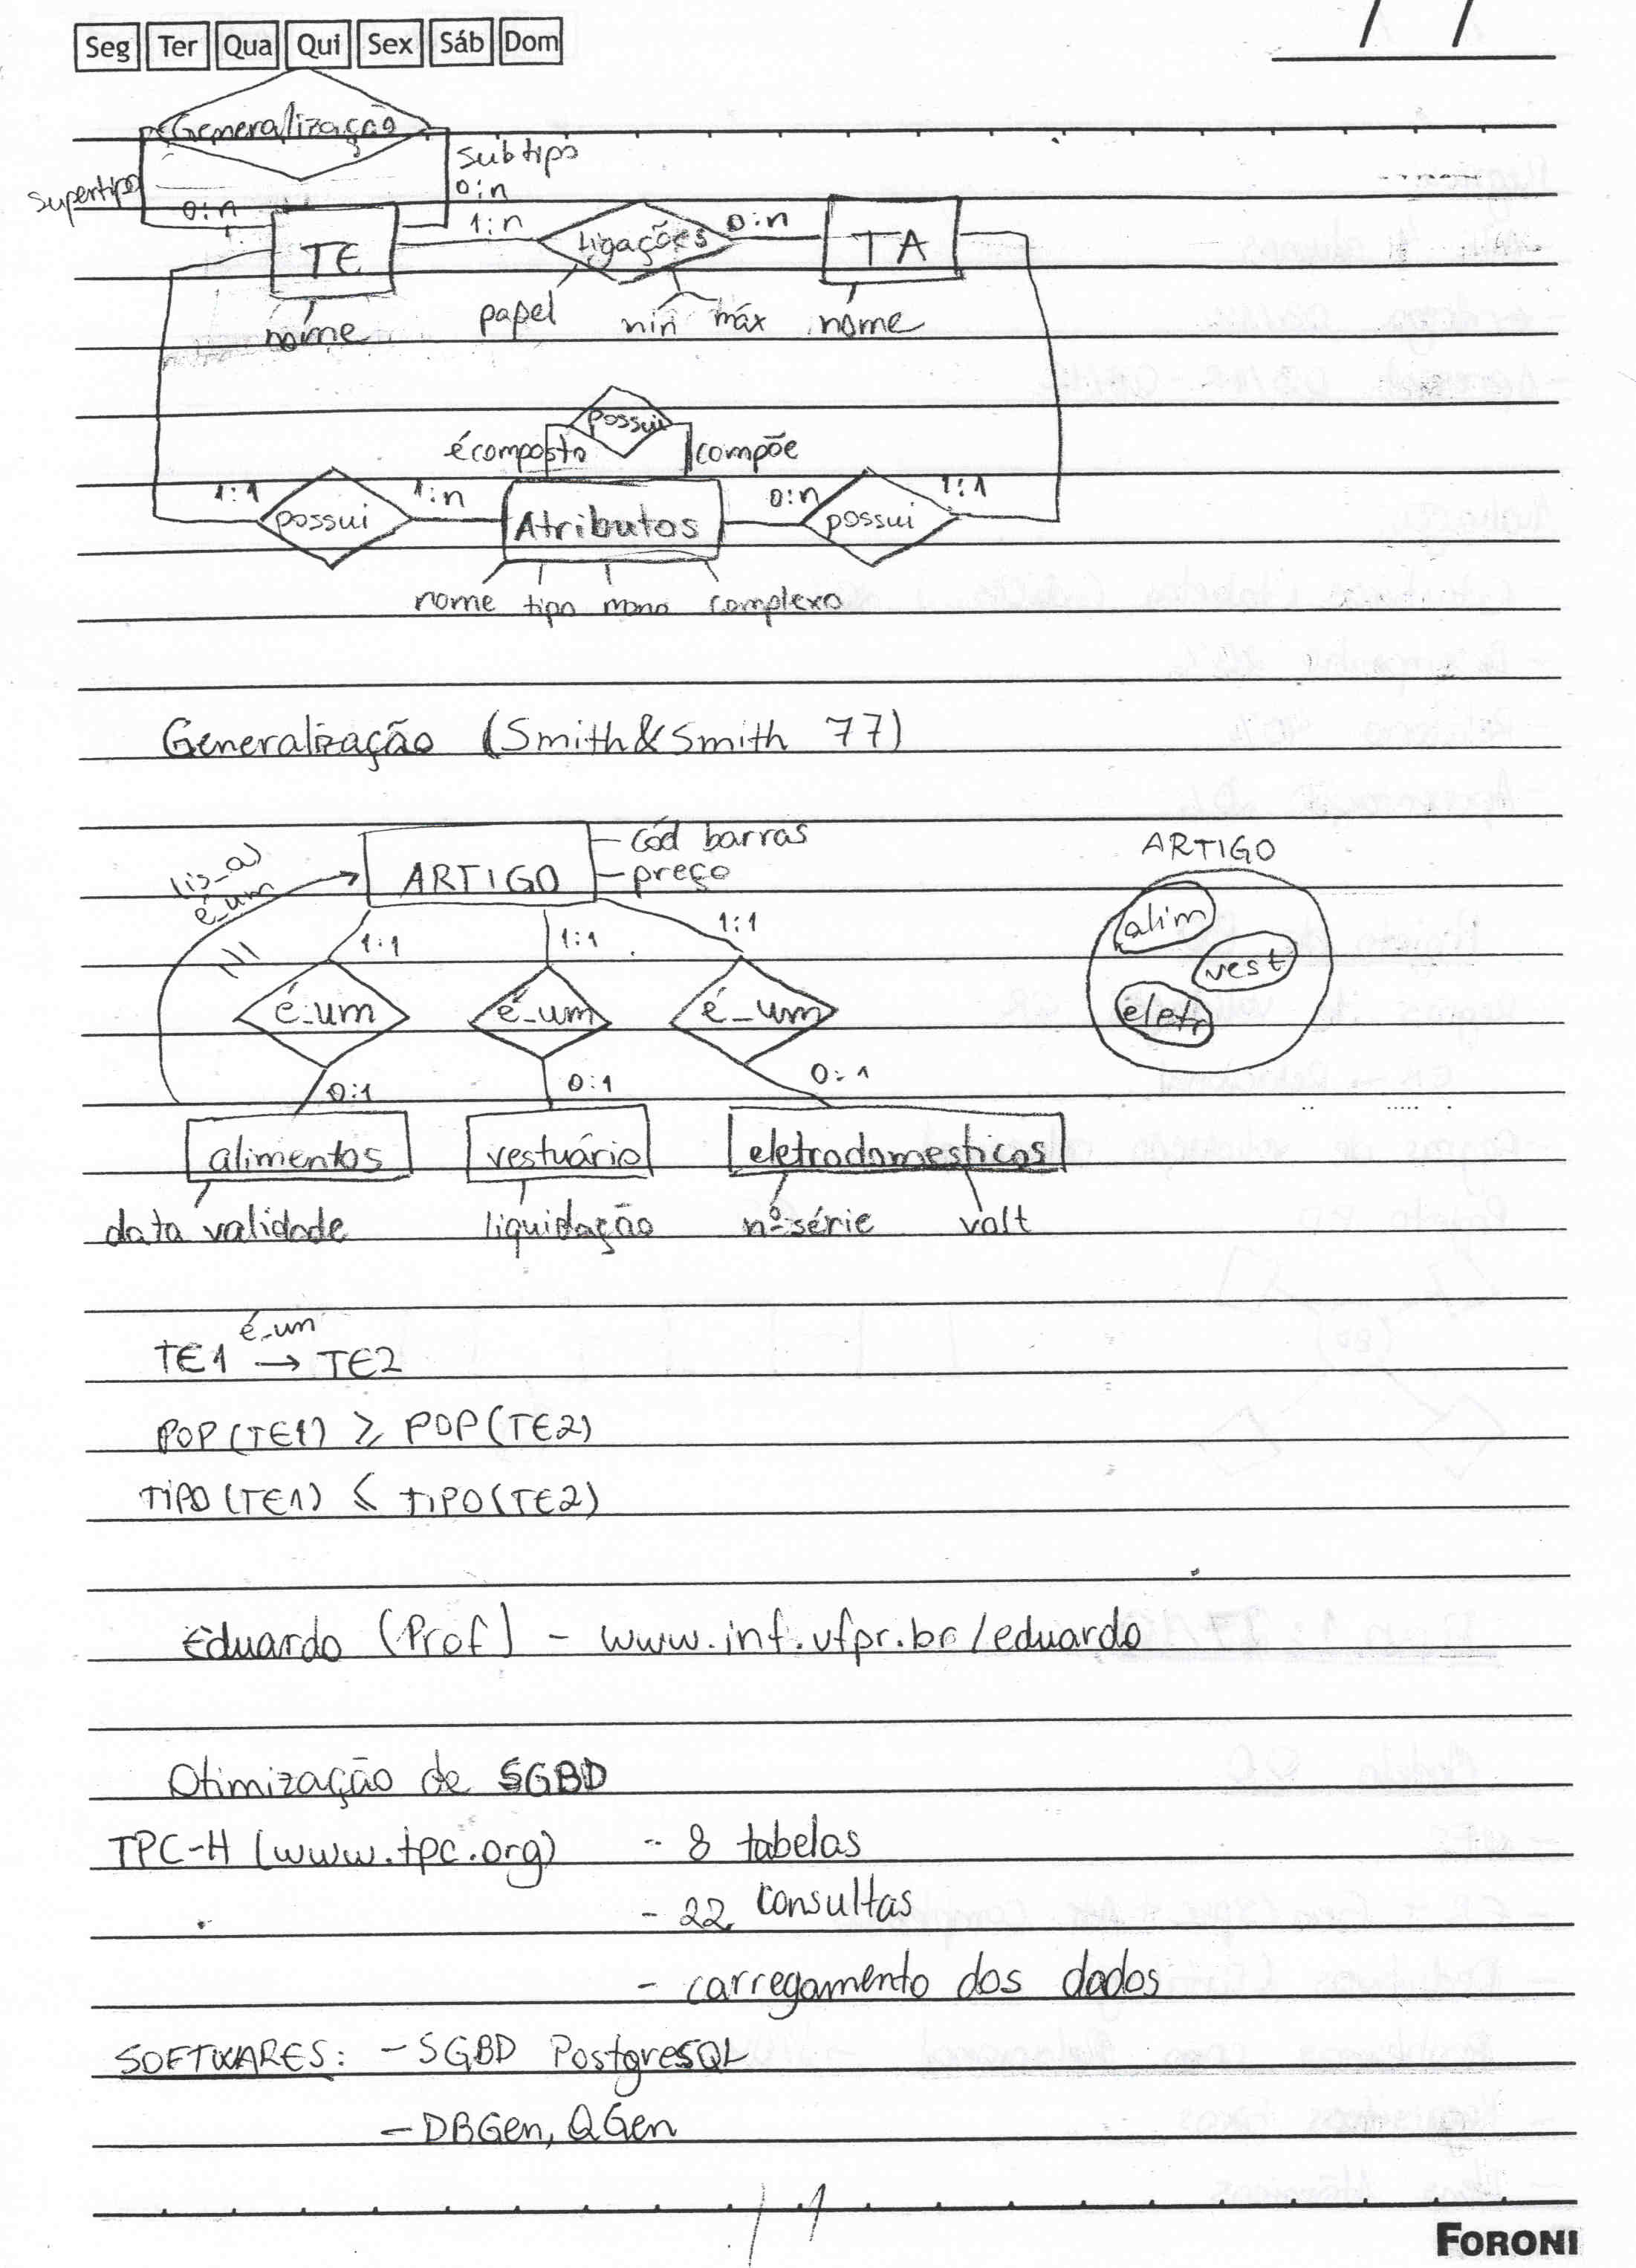 Seg Ter Qua Qui Sex Sáb Dom
/ /
Generalização
subtipo
supertipo
0:n
0:n
1:n
0:n
TE
Ligações
TA
nome
papel
min
máx
nome
possui
é composto
compõe
1:1
1:n
0:n
1:1
possui
Atributos
possui
nome tipo mono complexo
Generalização (Smith&Smith 77)
cód barras
ARTIGO
preço
ARTIGO
(is_a)
é_um
alim
vest
eletr
1:1
1:1
1:1
é_um
é_um
é_um
0:1
0:1
0:1
alimentos
vestuário
eletrodomesticos
data validade
liquidação
nº série
volt
é_um
TE1 → TE2
POP(TE1) ⩾ POP(TE2)
TIPO(TE1) ⩽ TIPO(TE2)
Eduardo (Prof) - www.inf.ufpr.br/eduardo
Otimização de SGBD
TPC-H (www.tpc.org) - 8 tabelas
- 22 consultas
- carregamento dos dados
SOFTWARES: - SGBD PostgreSQL
- DBGen, QGen
/ /
FORONI